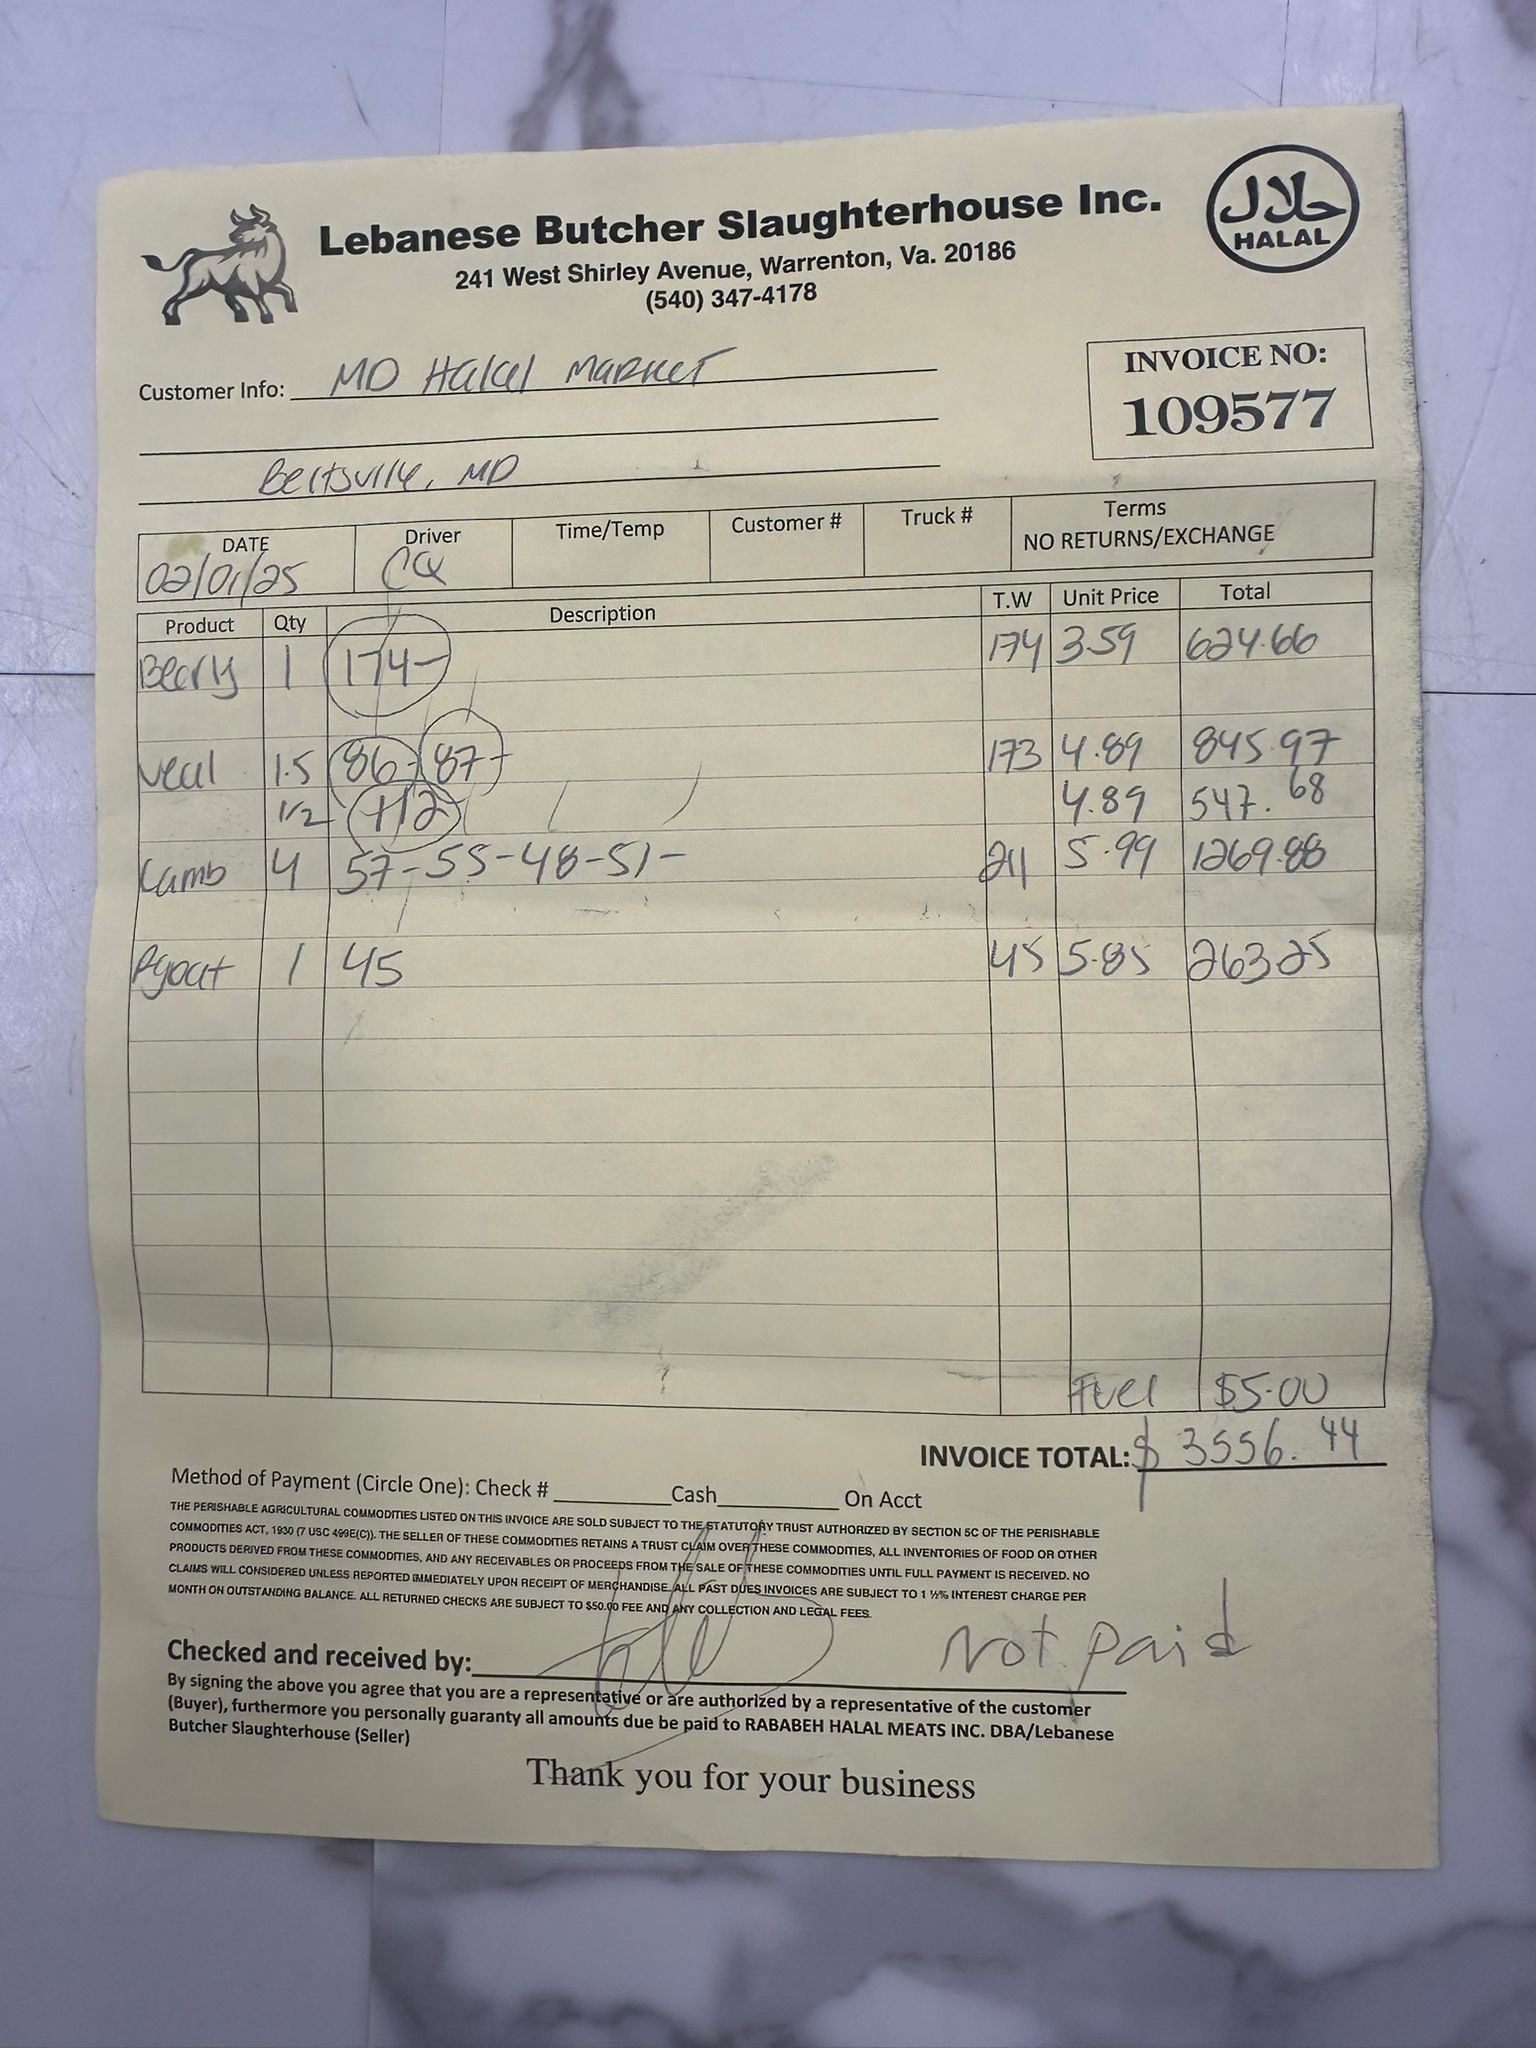 Lebanese Butcher Slaughterhouse Inc.
241 West Shirley Avenue, Warrenton, Va. 20186
(540) 347-4178
حلال
HALAL
Customer Info: MD Halal Market
Beltsville, MD
INVOICE NO:
109577
DATE Driver Time/Temp Customer # Truck # Terms
02/01/25 CQ NO RETURNS/EXCHANGE
Product Qty Description T.W Unit Price Total
1 174- 174 3.59 624.66
Veal 1.5 86- 87- 173 4.89 845.97
1/2 112 4.89 547.68
Lamb 4 57-55-48-51- 211 5.99 1269.88
1 45 45 5.85 263.25
Fuel $5.00
INVOICE TOTAL: $ 3556.44
Method of Payment (Circle One): Check # Cash On Acct
THE PERISHABLE AGRICULTURAL COMMODITIES LISTED ON THIS INVOICE ARE SOLD SUBJECT TO THE STATUTORY TRUST AUTHORIZED BY SECTION 5C OF THE PERISHABLE
COMMODITIES ACT, 1930 (7 USC 499E(C)). THE SELLER OF THESE COMMODITIES RETAINS A TRUST CLAIM OVER THESE COMMODITIES, ALL INVENTORIES OF FOOD OR OTHER
PRODUCTS DERIVED FROM THESE COMMODITIES, AND ANY RECEIVABLES OR PROCEEDS FROM THE SALE OF THESE COMMODITIES UNTIL FULL PAYMENT IS RECEIVED. NO
CLAIMS WILL CONSIDERED UNLESS REPORTED IMMEDIATELY UPON RECEIPT OF MERCHANDISE. ALL PAST DUES INVOICES ARE SUBJECT TO 1 ½% INTEREST CHARGE PER
MONTH ON OUTSTANDING BALANCE. ALL RETURNED CHECKS ARE SUBJECT TO $50.00 FEE AND ANY COLLECTION AND LEGAL FEES.
Checked and received by: Not paid
By signing the above you agree that you are a representative or are authorized by a representative of the customer
(Buyer), furthermore you personally guaranty all amounts due be paid to RABABEH HALAL MEATS INC. DBA/Lebanese
Butcher Slaughterhouse (Seller)
Thank you for your business